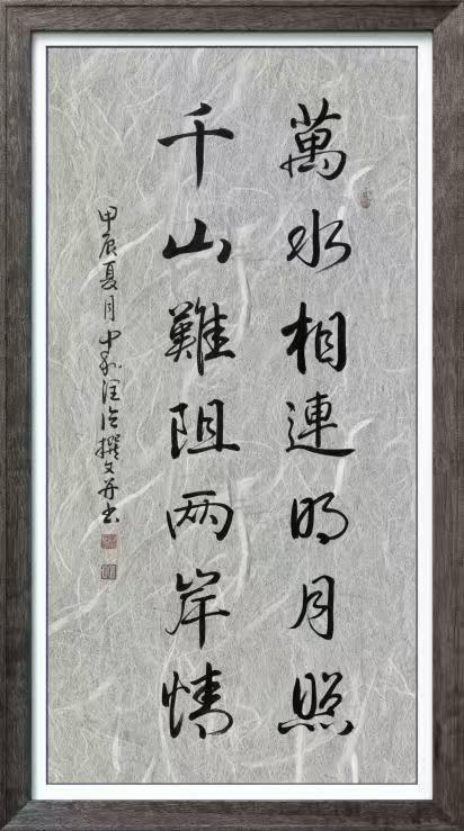 萬水相連明月照
千山難阻两岸情
甲辰夏月中和 撰文并书